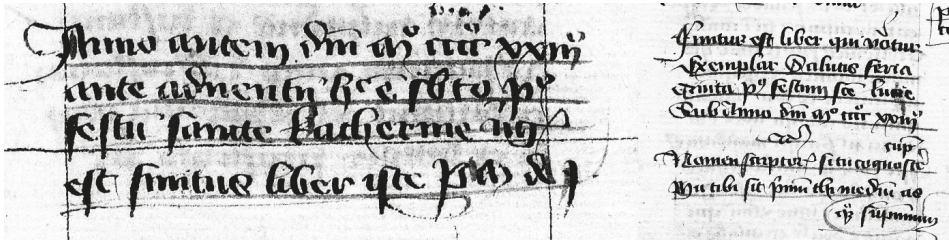 Anno autem dm̄ mº cccc xxiiiº
ante aduentū hᶜ ē sbto pº
festū sancte Katherine
est finitus liber iste
Finitus est liber qui vocatur
Exemplar Salutis feria
quinta pº festum sce lucie
Sub Anno dm̄ mº cccc xxiiiº
cup
Nomen scriptor si tu cognosce
tibi sit medium
supremum